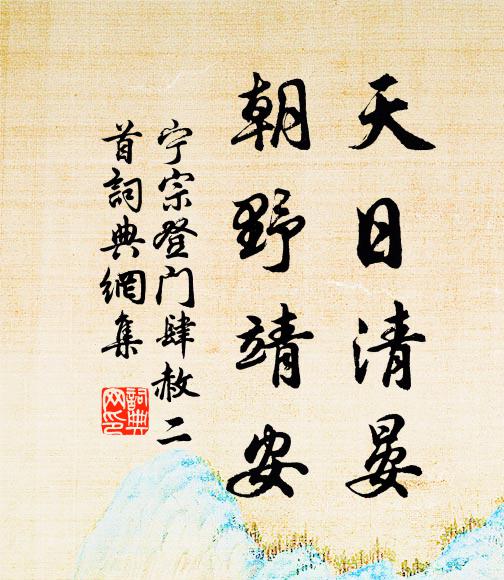 天日清晏
朝野靖安
宁宗登门肆赦二
首詞典網集
詞典
网印